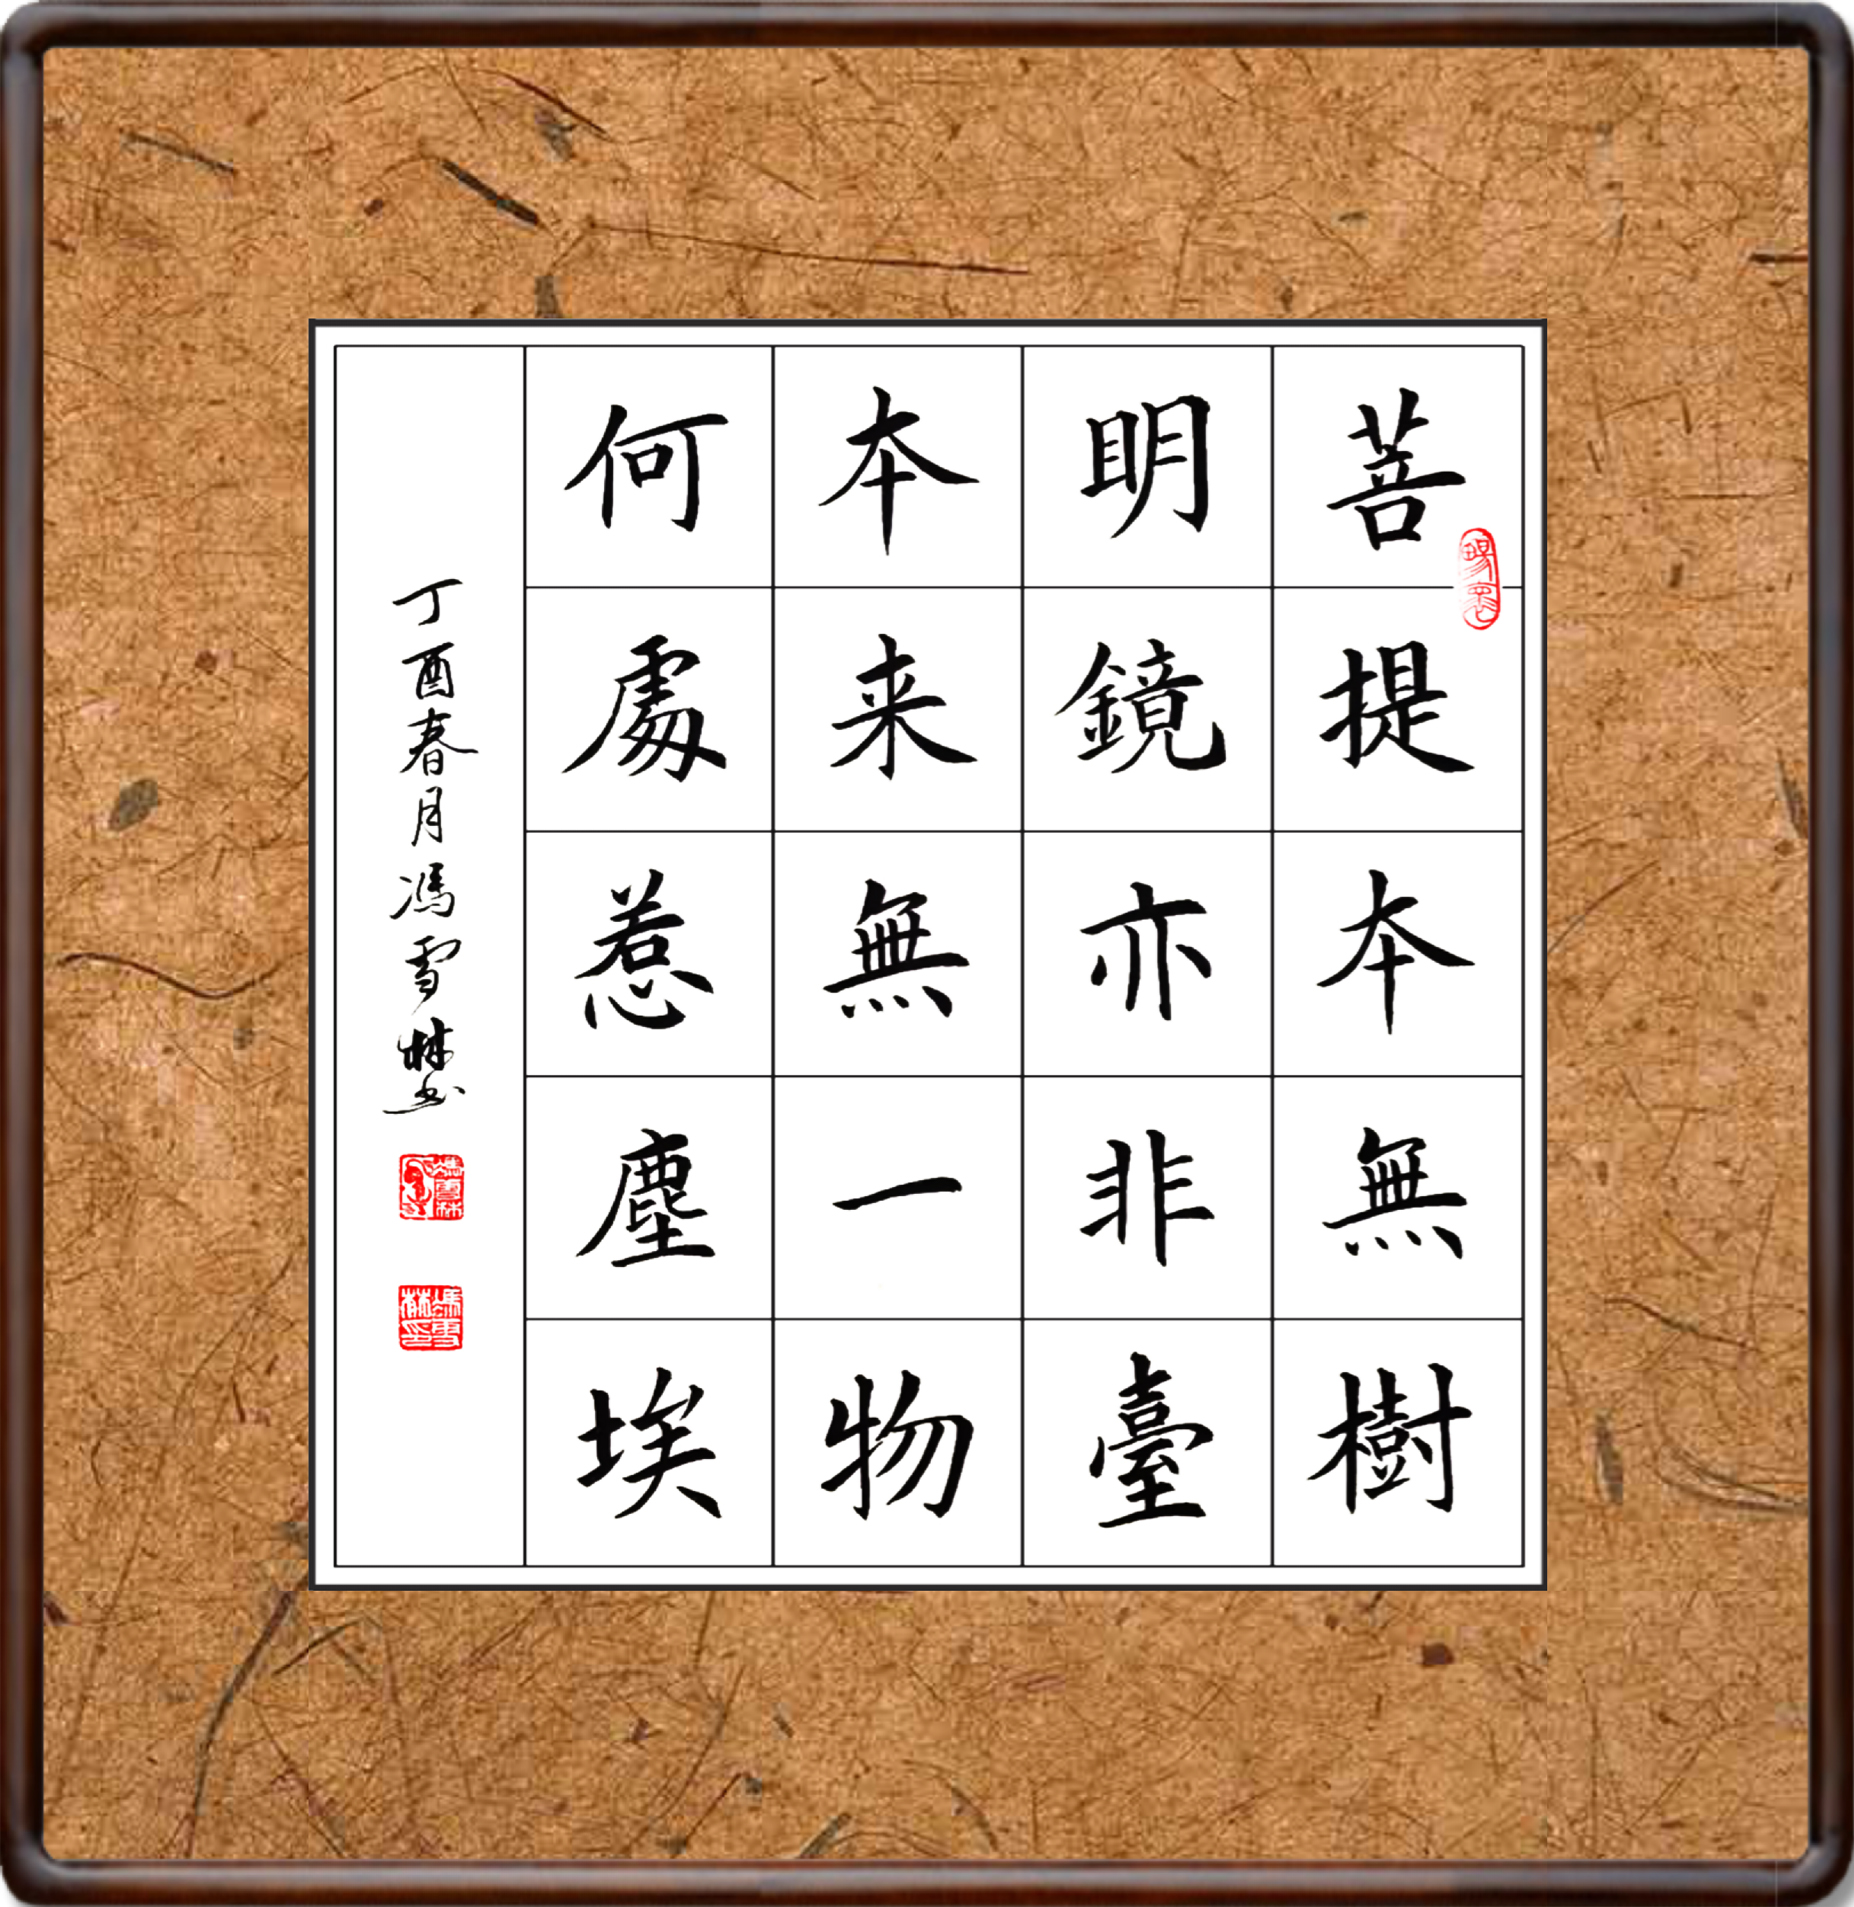 菩提本無樹
明鏡亦非臺
本来無一物
何處惹塵埃
丁酉春月馮雪林書
馮雪林印